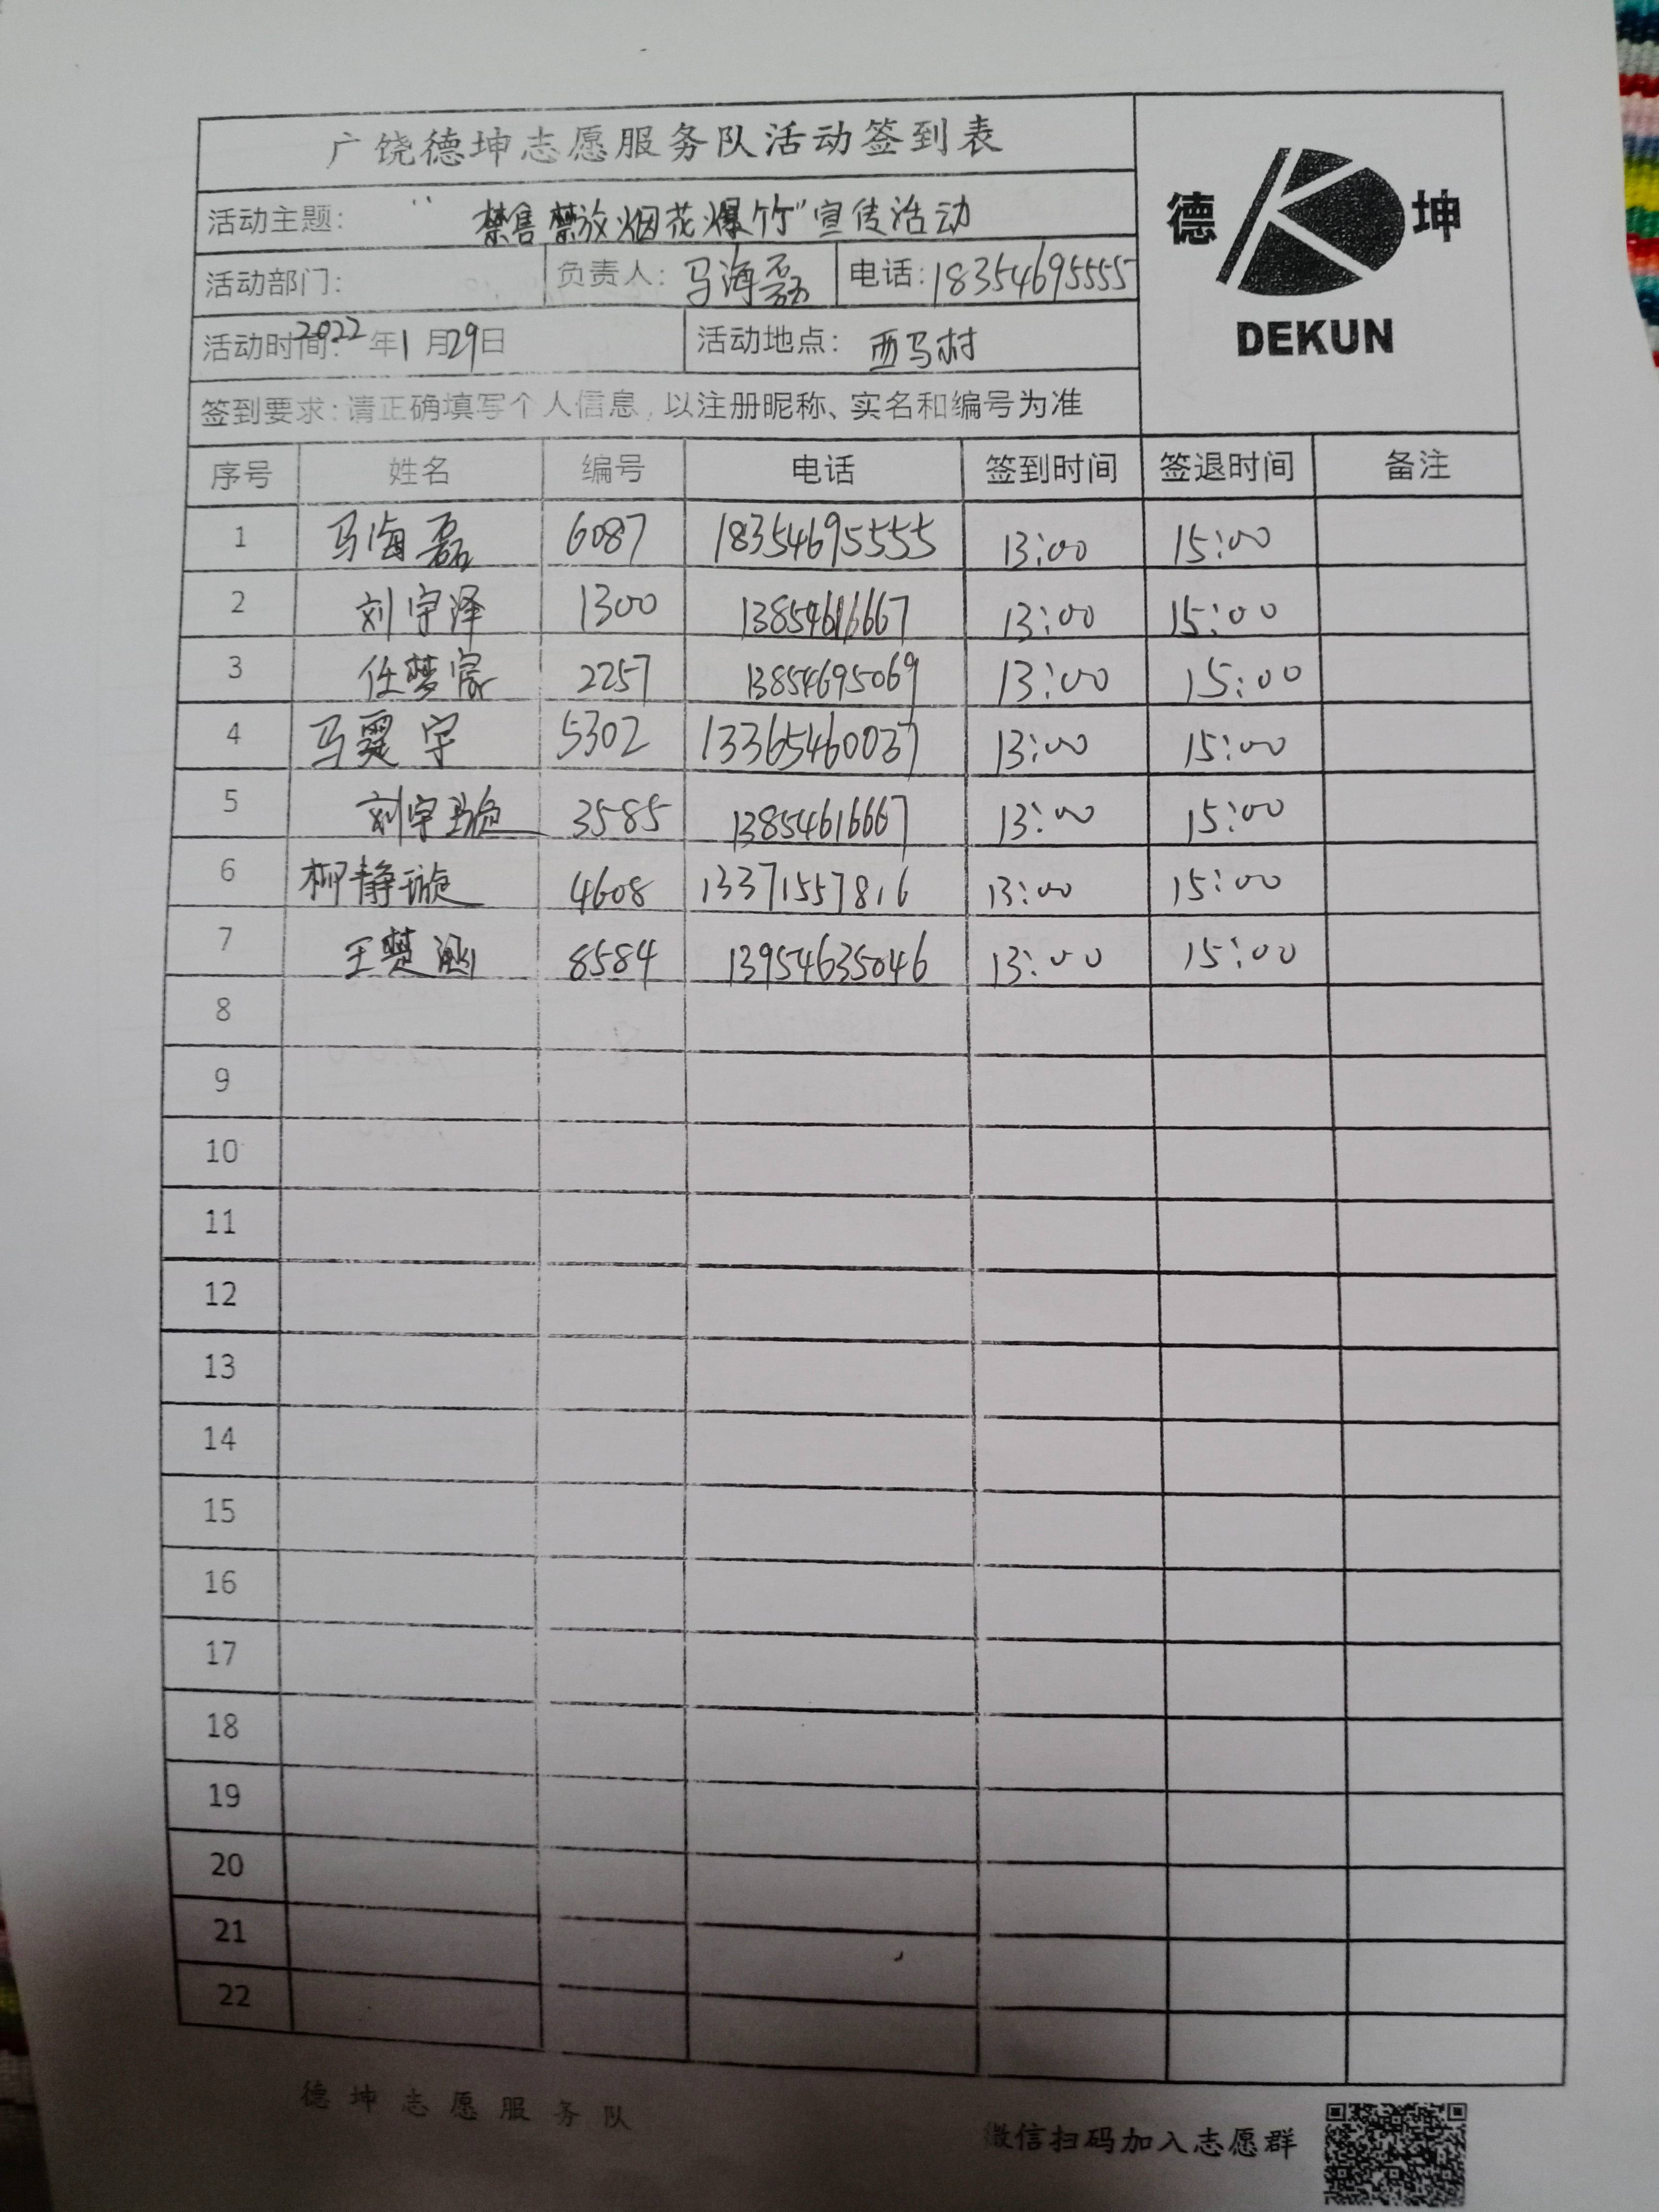 广饶德坤志愿服务队活动签到表
德 坤
DEKUN
活动主题: “禁售禁放烟花爆竹”宣传活动
活动部门: 负责人: 马海磊 电话: 18354695555
活动时间: 2022年1月29日 活动地点: 西马村
签到要求: 请正确填写个人信息, 以注册昵称、实名和编号为准
序号 姓名 编号 电话 签到时间 签退时间 备注
1 马海磊 6087 18354695555 13:00 15:00
2 刘宇泽 1300 13854616667 13:00 15:00
3 任梦家 2257 13854695069 13:00 15:00
4 马霆宇 5302 13365460037 13:00 15:00
5 刘宇璇 3585 13854616667 13:00 15:00
6 柳静璇 4608 13371557816 13:00 15:00
7 王楚涵 8584 13954635046 13:00 15:00
8
9
10
11
12
13
14
15
16
17
18
19
20
21
22
德坤志愿服务队
微信扫码加入志愿群